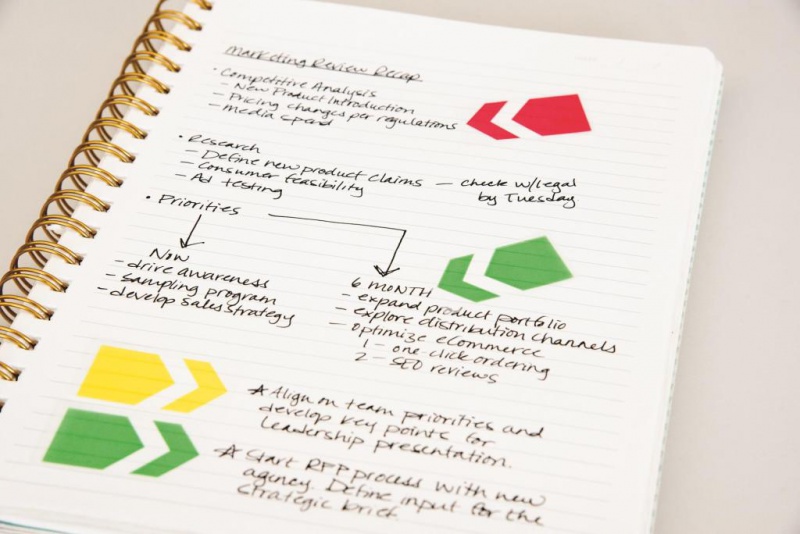 Marketing Review Recap
• Competitive Analysis
- New Product Introduction
- Pricing changes per regulations
- Media spend
• Research
- Define new product claims — check w/legal
by Tuesday
- Consumer feasibility
- Ad testing
• Priorities
Now
- drive awareness
- sampling program
- develop sales strategy
6 MONTH
- expand product portfolio
- explore distribution channels
- optimize ecommerce
1 - one-click ordering
2 - SEO reviews
☆ Align on team priorities and
develop key points for
Leadership presentation.
☆ Start RFP process with new
agency. Define input for the
strategic brief.